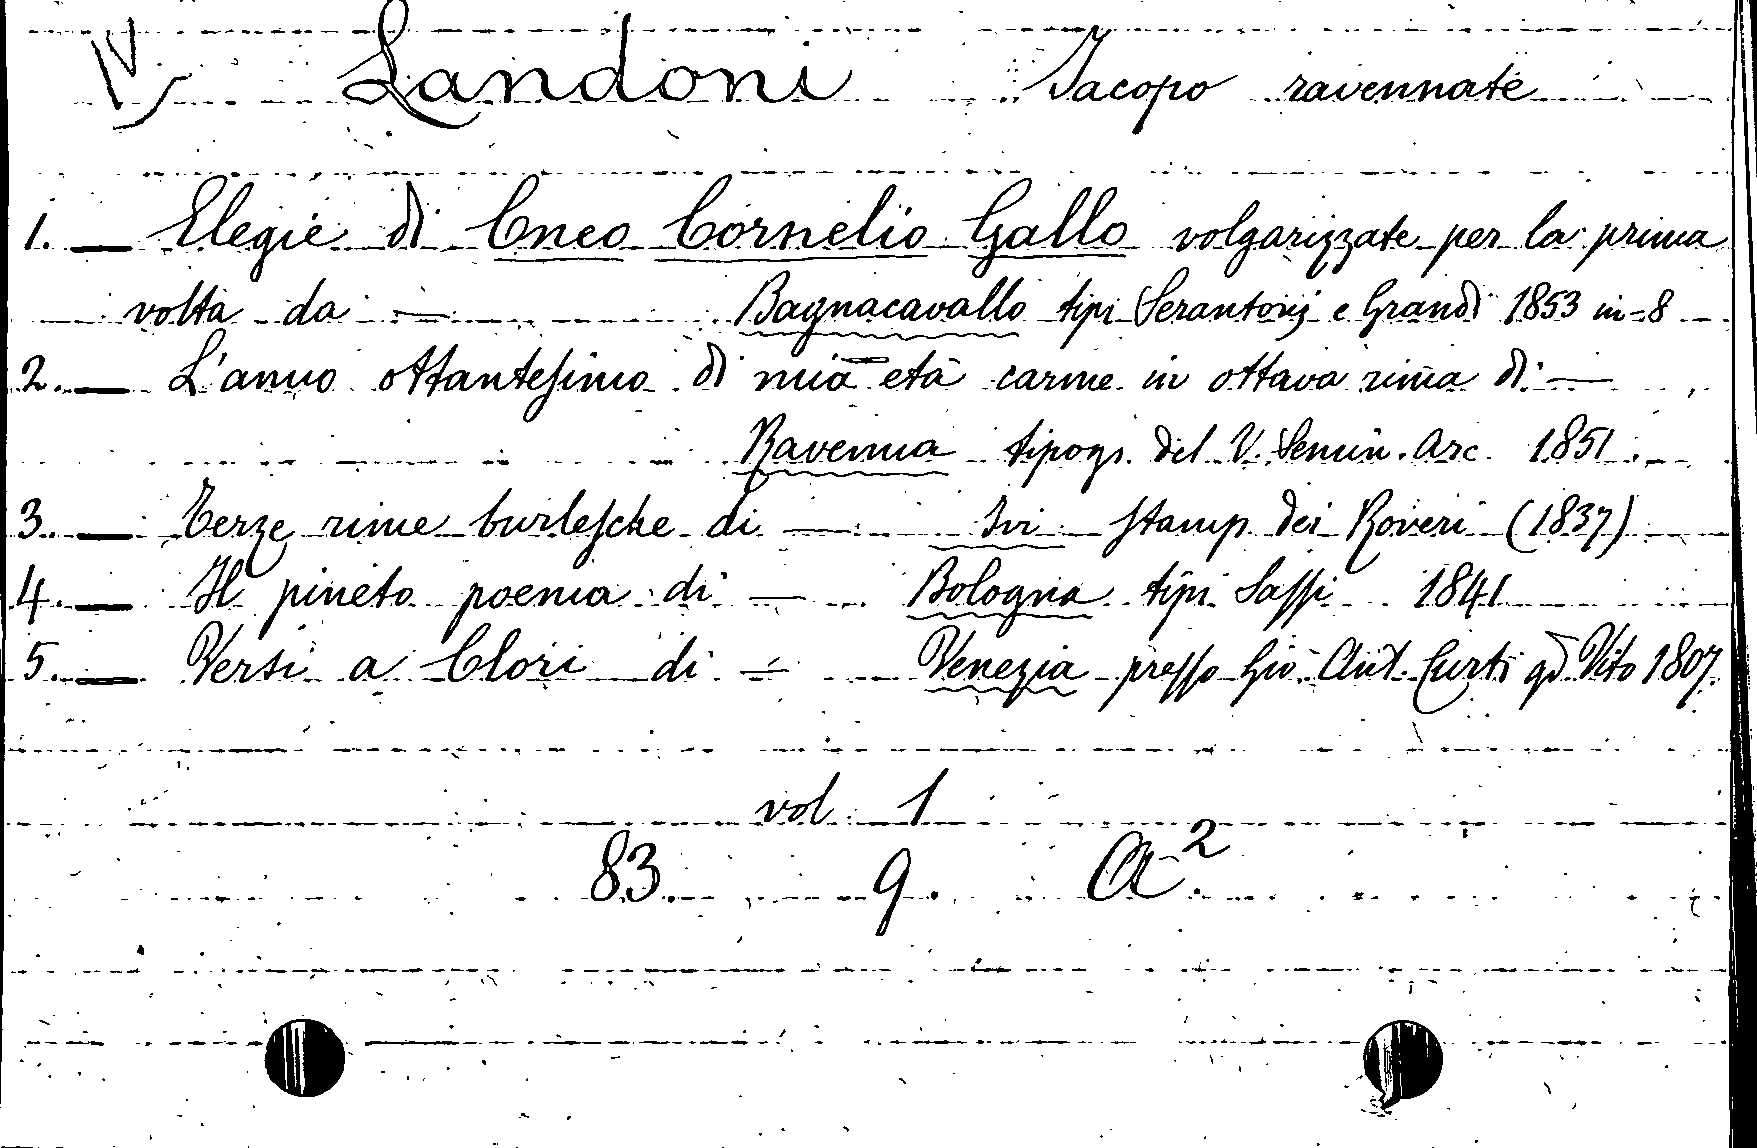 Landoni Jacopo ravennate
1. — Elegie di Cneo Cornelio Gallo volgarizzate per la prima
volta da — Bagnacavallo tipi Serantonj e Grandi 1853 in-8
2. — L'anno ottantesimo di mia età carme in ottava rima di —
Ravenna tipogr. del V. Semin. Arc. 1851.
3. — Terze rime burlesche di — Ivi stamp. dei Roveri (1837)
4. — Il pineto poema di — Bologna tipi Sassi 1841
5. — Versi a Clori di — Venezia presso Gio. Ant. Curti qd Vito 1807.
vol 1
83. 9. A.2